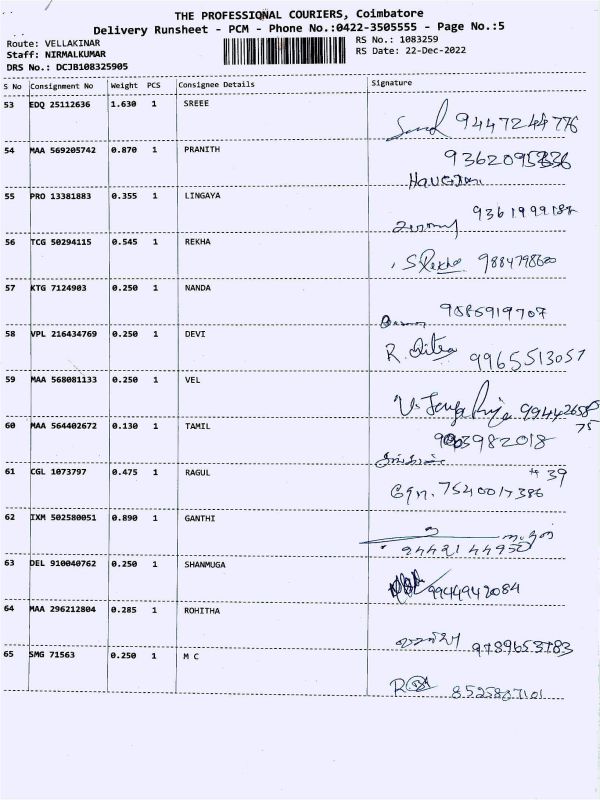 THE PROFESSIONAL COURIERS, Coimbatore
Delivery Runsheet - PCM - Phone No.:0422-3505555 - Page No.:5
Route: VELLAKINAR
RS No.: 1083259
Staff: NIRMALKUMAR
RS Date: 22-Dec-2022
DRS No.: DCJB108325905
S No Consignment No Weight PCS Consignee Details Signature
53 EDQ 25112636 1.630 1 SREEE
9447244776
54 MAA 569205742 0.870 1 PRANITH
55 PRO 13381883 0.355 1 LINGAYA
56 TCG 50294115 0.545 1 REKHA
S. Rekha 9884798600
57 KTG 7124903 0.250 1 NANDA
58 VPL 216434769 0.250 1 DEVI
R. 9965513057
59 MAA 568081133 0.250 1 VEL
60 MAA 564402672 0.130 1 TAMIL
61 CGL 1073797 0.475 1 RAGUL
39
7540017386
62 IXM 502580051 0.890 1 GANTHI
9442144950
63 DEL 910040762 0.250 1 SHANMUGA
9944942084
64 MAA 296212804 0.285 1 ROHITHA
9789653783
65 SMG 71563 0.250 1 M C